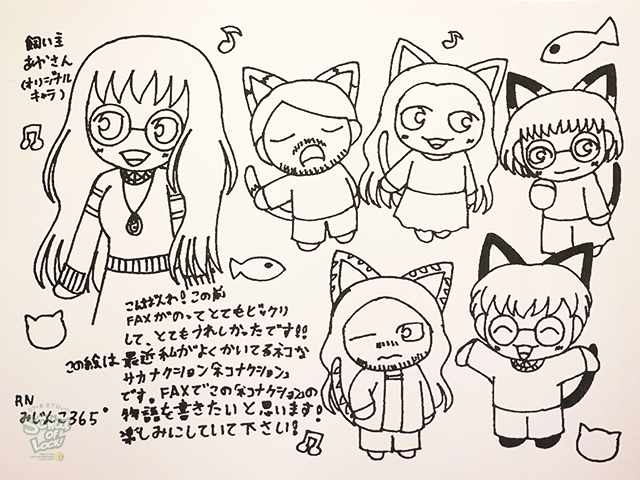 飼い主
あやさん
(オリジナル
キャラ)
こんばんわ!この前
FAXがのってとてもビックリ
して、とてもうれしかったです!!
この絵は最近私がよくかいてるネコな
サカナクション「ネコナクション」
です。FAXでこのネコナクションの
物語を書きたいと思います!
楽しみにしていて下さい!
RN
みじんこ365°
SCHOOL OF LOCK!